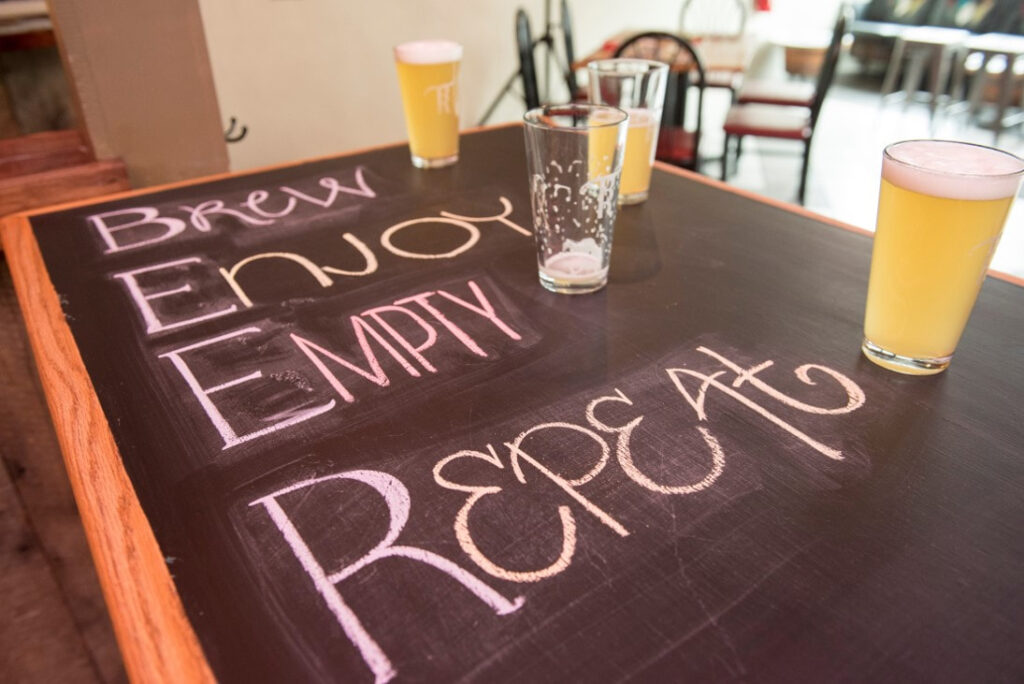 BREW
ENJOY
EMPTY
REPEAT